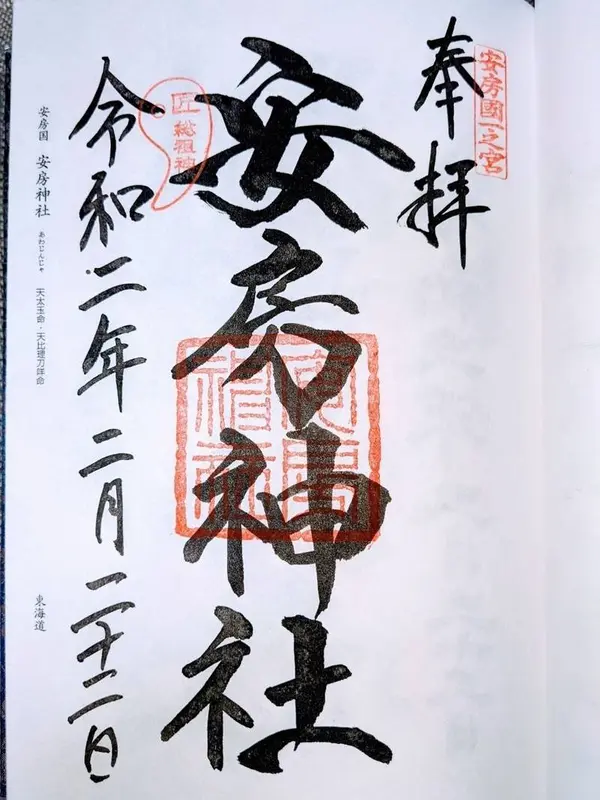 奉拝
安房國一之宮
安房神社
匠総祖神
令和二年二月二十二日
安房国 安房神社 あわじんじゃ 天太玉命・天比理刀咩命
東海道